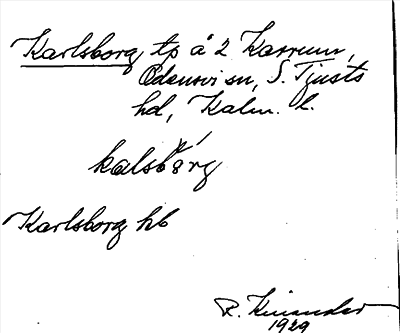 Karlsborg, tp å 2 Karrum,
Odensvi sn, S. Tjusts
hd, Kalm. l.
kalsbårg
Karlsborg hb
R. Kinander
1929